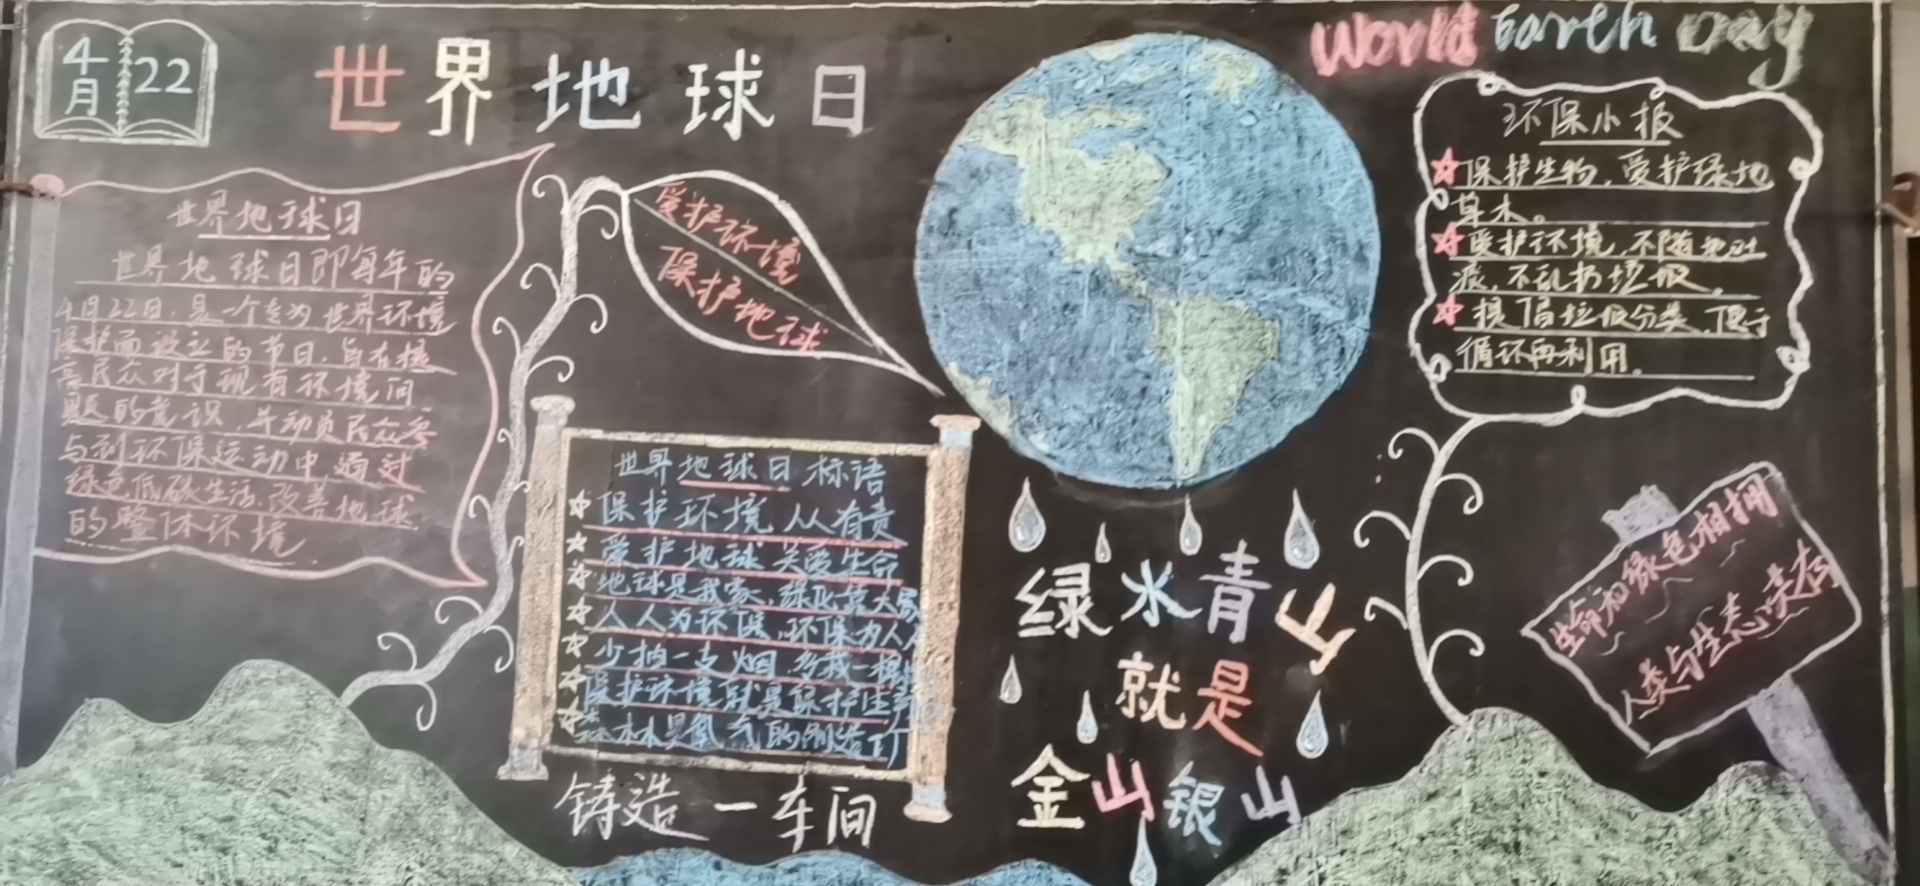 4月 22
世界地球日
World Earth Day
世界地球日
世界地球日即每年的
4月22日,是一个专为世界环境
保护而设立的节日,旨在提
高民众对于现有环境问
题的意识,并动员民众参
与到环保运动中通过
绿色低碳生活,改善地球
的整体环境
爱护环境
保护地球
世界地球日标语
保护环境 人人有责
爱护地球 关爱生命
地球是我家,绿化靠大家
人人为环保,环保为人人
少抽一支烟 多栽一棵
保护环境就是保护生
森林是氧气的制造厂
铸造一车间
绿水青山
就是
金山银山
环保小报
保护生物,爱护绿地
草木。
爱护环境,不随地吐
痰,不乱扔垃圾。
提倡垃圾分类,便于
循环再利用。
生命和绿色相拥
人类与生态共存